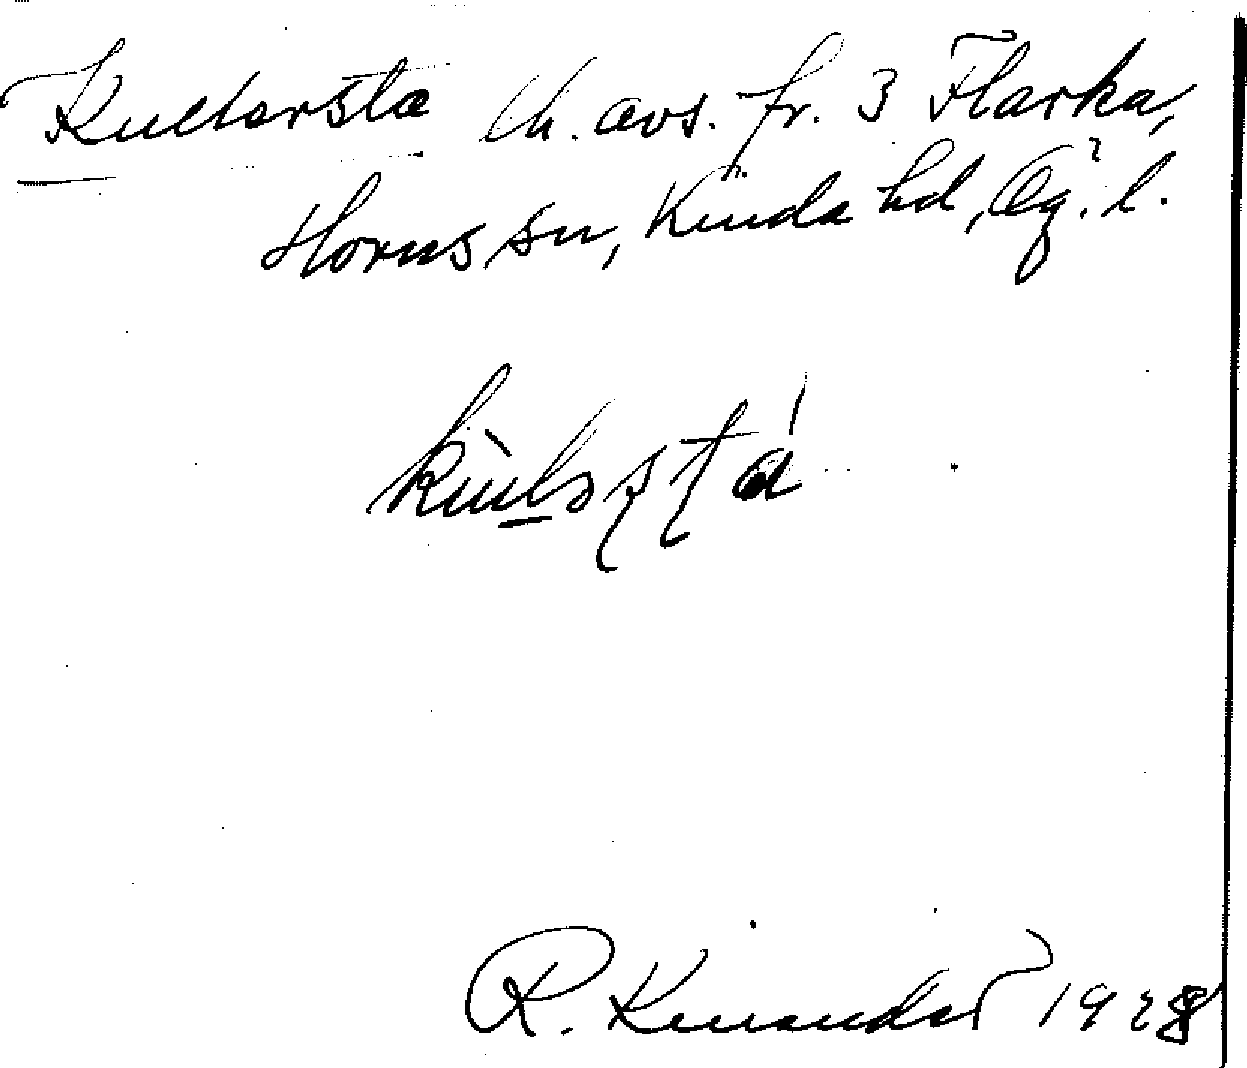 Kullersta lh. avs. fr. 3 Flarka,
Horns sn, Kinda hd, Ög. l.
R. Kinander 1928